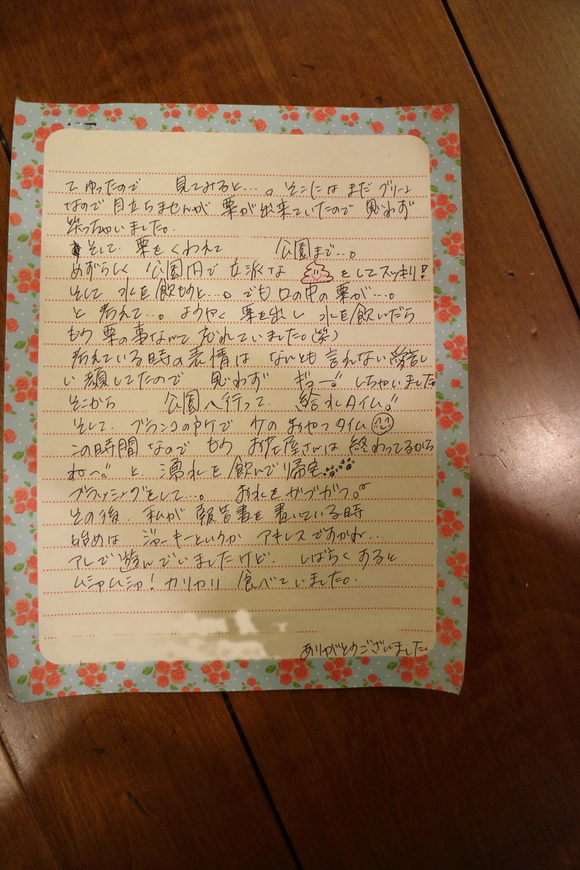 てゆったので 見てみると…。そこには まだ グリーン
なので 目立ちませんが 栗が出来ていたので 思わず
笑っちゃいました。
そして、栗をくわえて 公園まで…。
めずらしく 公園内で 立派な をしてスッキリ!
そして 水を飲もうと…。でも口の中の栗が…。
と 考えて…。ようやく 栗を出し 水を飲いだら
もう 栗の事なんて 忘れていました。(笑)
考えている時の表情は なんとも言えない愛らし
い顔してたので 思わず ギュー。しちゃいました
そこから 公園へ行って、給水タイム。
そして、ブランコのやりで ケの おやつタイム
この時間なので もう お花屋さんは 終わってるから
ね〜。と、湧水を飲んで帰宅
ブラッシングをして…。お水をガブガブ。
その後、私が 報告書を書いている時
始めは ジャーキーというか アキレスですかね…
アレで遊んでいましたけど、しばらくすると
ムシャムシャ!カリカリ 食べていました。
ありがとうございました